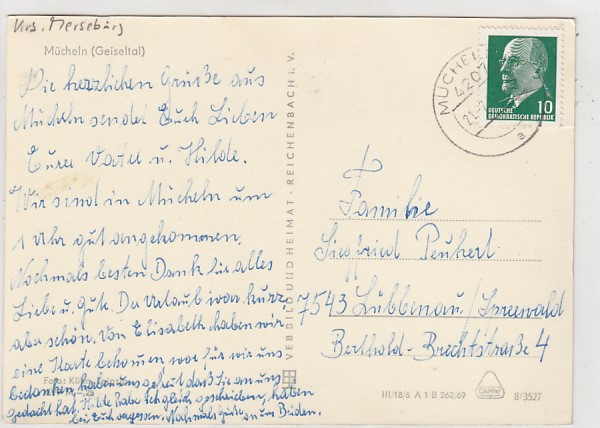 Krs. Merseburg
Mücheln (Geiseltal)
Die herzlichen Grüße aus
Mücheln sendet Euch Lieben
Eurer Vater u. Hilde.
Wir sind in Mücheln um
1 Uhr gut angekommen.
Nochmals besten Dank für alles
Liebe u. gute. Der Urlaub war kurz
aber schön. Von Elisabeth haben wir
eine Karte bekommen wo für wir uns
bedanken, haben uns gefreut daß Sie an uns
gedacht hat. Hilde habe ich gleich geschrieben, haben
bei Euch vergessen. Nochmals Grüße an uns Beiden.
Foto:
VEB BILD UND HEIMAT · REICHENBACH i. V.
MÜCHEL
4207
21.
a
10
DEUTSCHE
DEMOKRATISCHE REPUBLIK
Familie
Siegfried Peukert
7543 Lübbenau/Spreewald
Berthold-Brechtstraße 4
III/18/6 A 1 B 262/69
8/3527